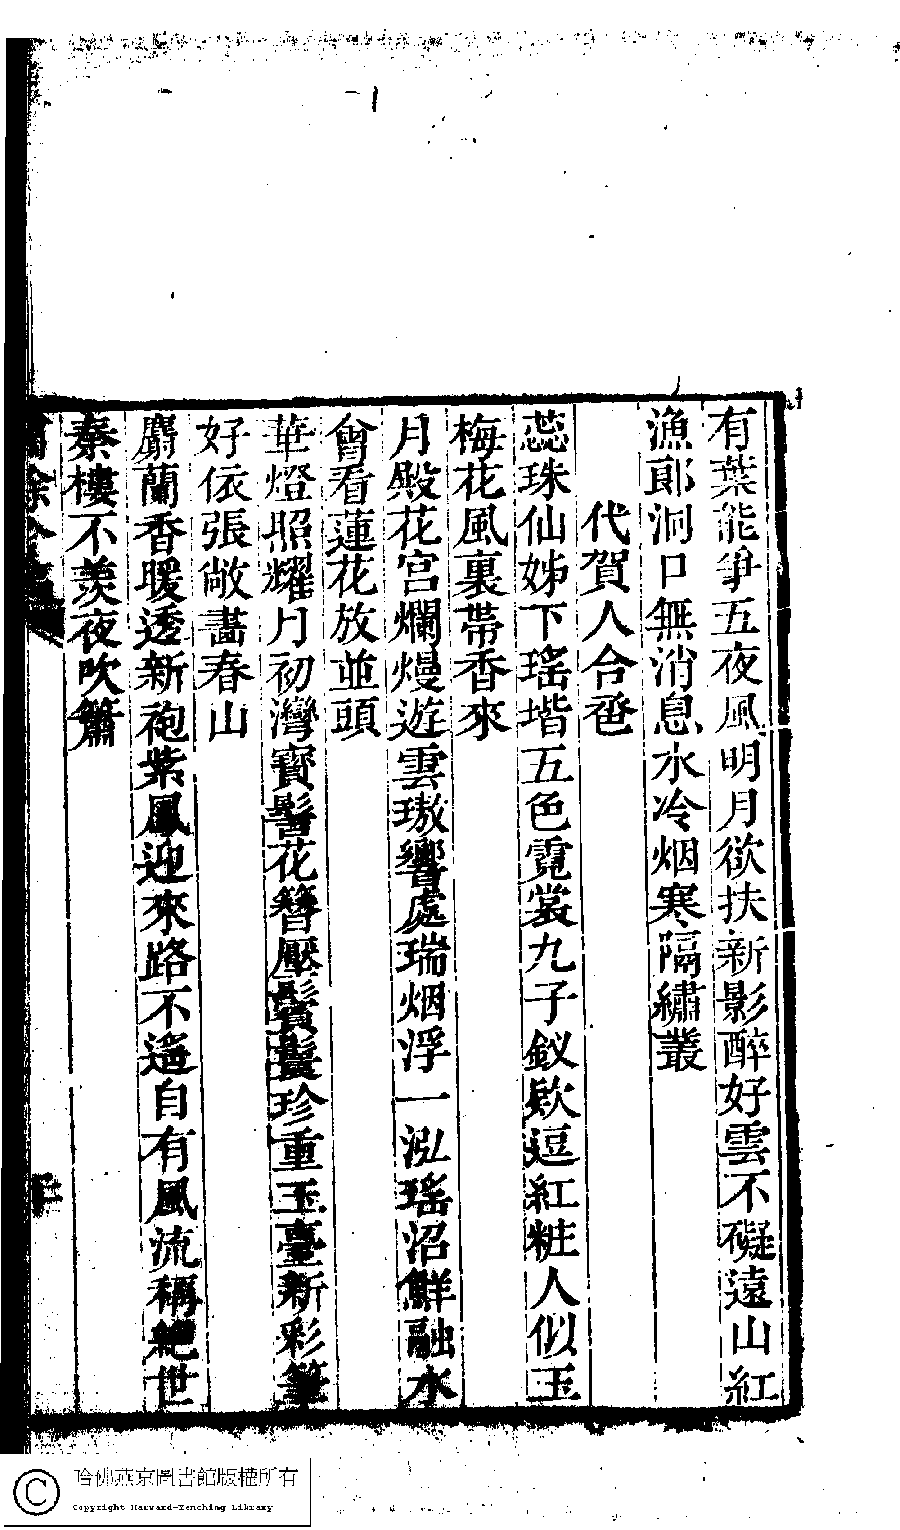 有葉能爭五夜風明月欲扶新影醉好雲不礙遠山紅
漁郎洞口無消息水冷烟寒隔繡叢
代賀人合卺
蕊珠仙姊下瑤堦五色霓裳九子釵歘逗紅粧人似玉
梅花風裏帶香來
月殿花宮爛熳遊雲璈響處瑞烟浮一泓瑤沼鮮融水
曾看蓮花放並頭
華燈照耀月初灣寳髻花簪壓鬢鬟珍重玉臺新彩筆
好依張敞畵春山
麝蘭香暖透新袍紫鳳迎來路不遙自有風流稱絕世
秦樓不羨夜吹簫
哈佛燕京圖書館版權所有
Copyright Harvard-Yenching Library